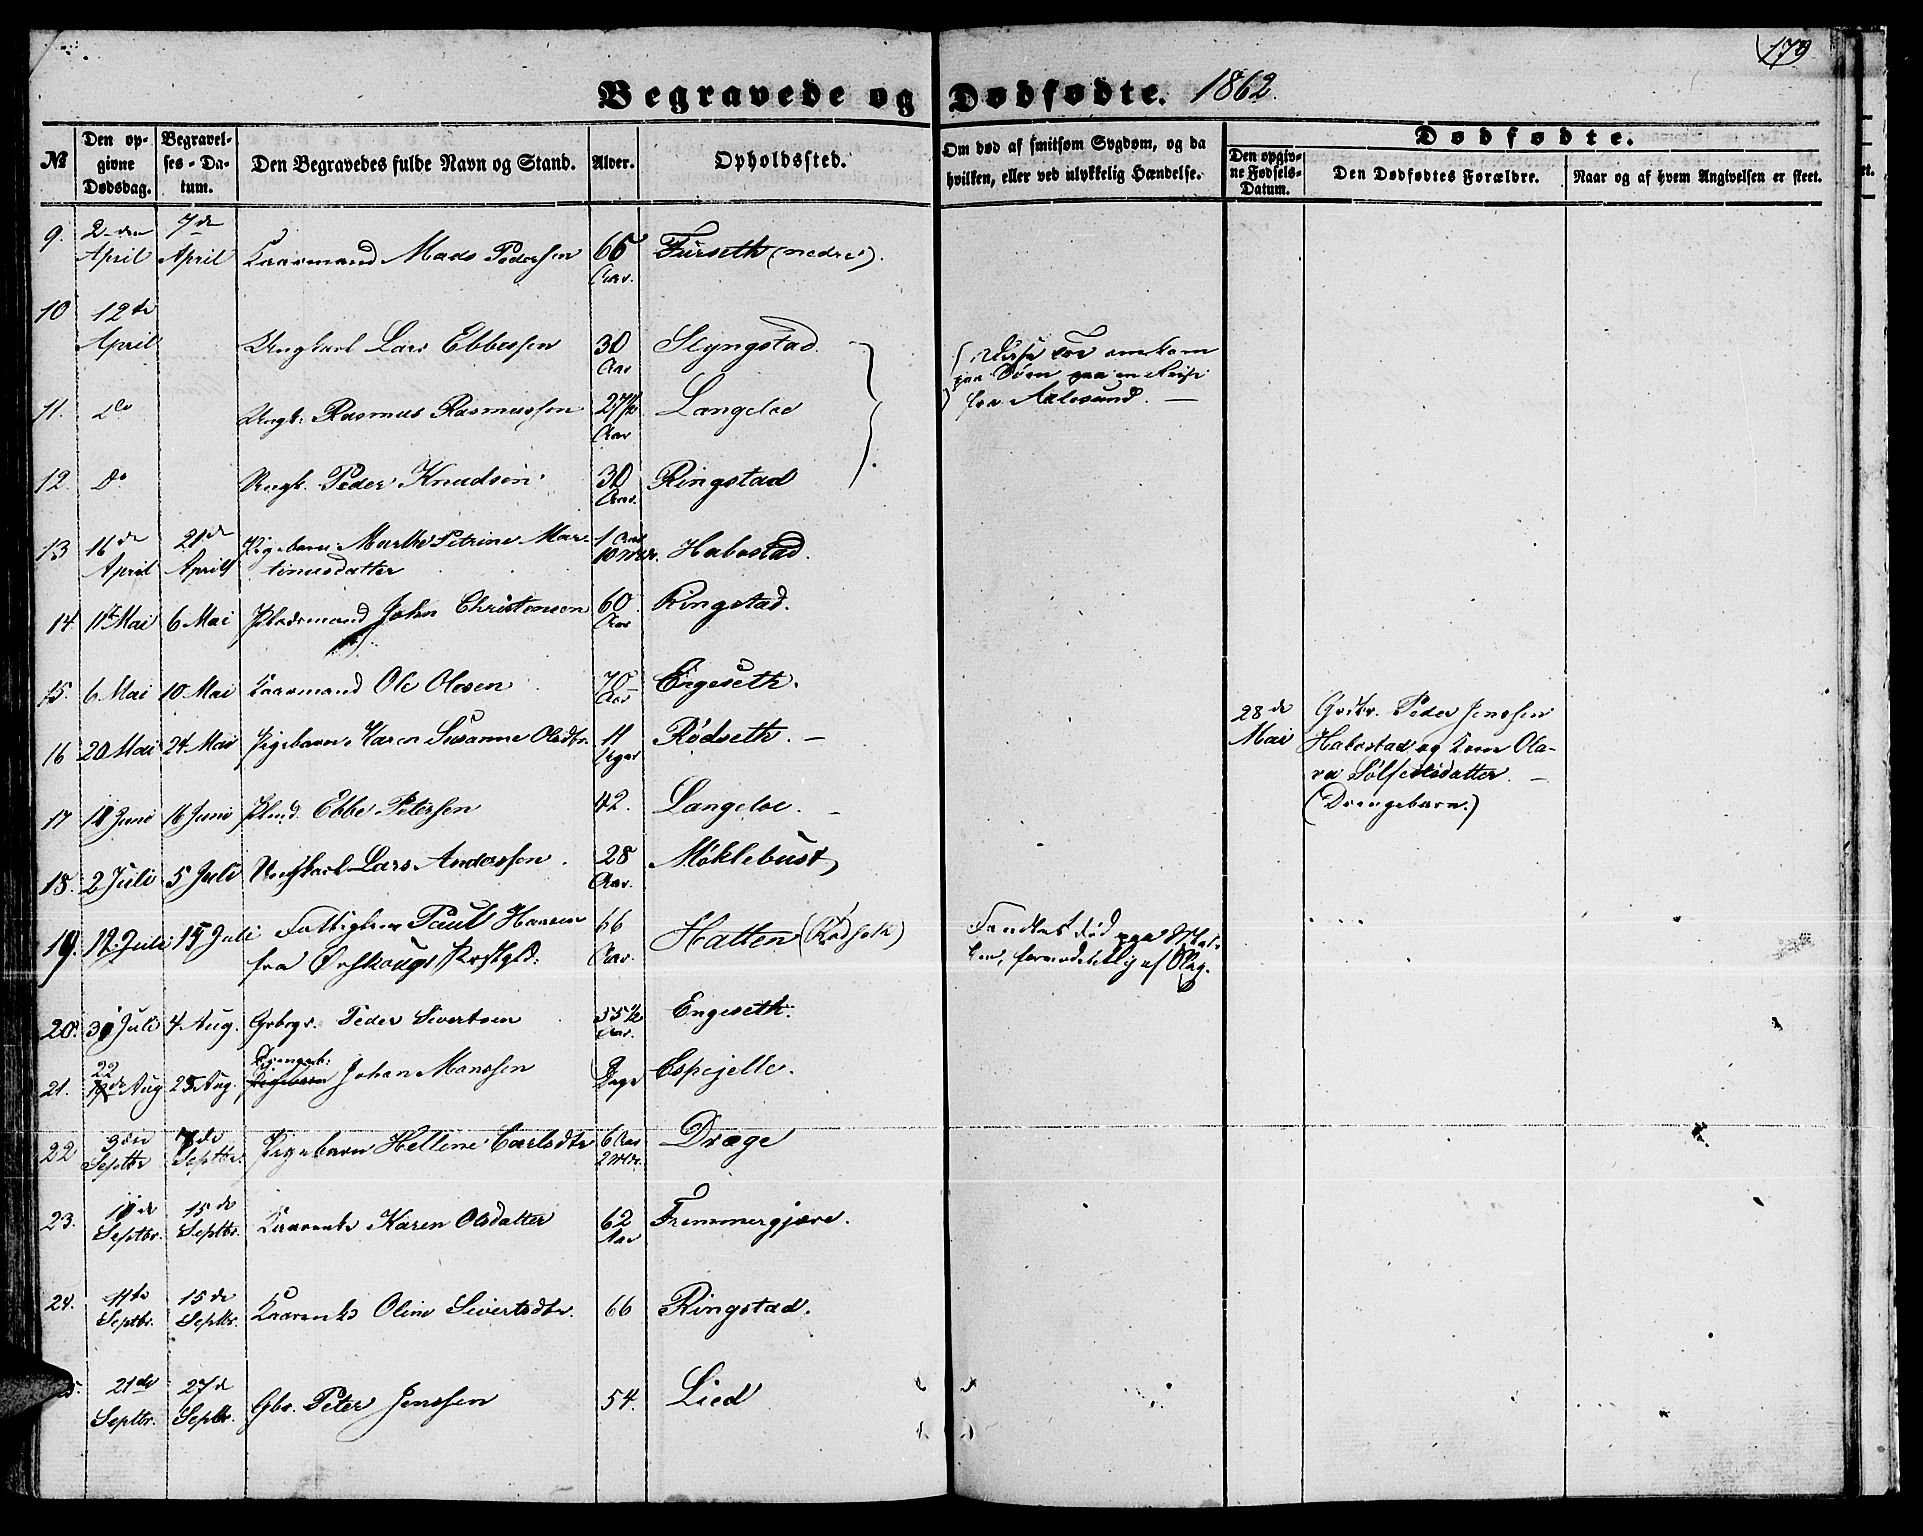 179
Begravede og Dødfødte. 1862.
Dødfødte.
№
Den op-
givne
Dødsdag.
Begravel-
ses-Da-
tum.
Den Begravedes fulde Navn og Stand.
Alder.
Opholdssted.
Om død af smitsom Sygdom, og da
hvilken, eller ved ulykkelig Hændelse.
Den opgiv-
ne Fødsels-
Datum.
Den Dødfødtes Forældre.
Naar og af hvem Angivelsen er skeet.
9. 2den April 7de April Kaarmand Mads Pedersen 65 Aar. Furseth (nedre).
10 12te April Ungkarl Lars Ebbessen 30 Aar Slyngstad.
Disse omkom
paa Søen paa en Reise
fra Aalesund. —
11. Do Ungk. Rasmus Rasmussen 27½ Aar Langeloe
12. Do Ungk. Peder Knudsen 30 Aar. Ringstad
13 16de April 21de April Pigebarn Marthe Petrine Mar-
tinusdatter 1 Aar 10 Mdr. Habostad.
14 1te Mai 6 Mai Pladsmand John Christensen 60 Aar Ringstad.
15. 6 Mai 10 Mai Kaarmand Ole Olesen 70 Aar Engeseth.
16 20 Mai 24 Mai Pigebarn Karen Susanne Olsdtr. 11 Uger Rødseth. —
28de Mai
Grdbr. Peder Jenssen
Habostad og Kone Ola-
va Sølfestsdatter. —
(Drengebarn.)
17 11 Juni 16 Juni Plmd. Ebbe Petersen 42. Langeloe. —
18. 2 Juli 5 Juli Ungkarl Lars Anderssen. 28 Aar. Møklebust
19. 12 Juli 15 Juli Fattiglem Paul Hansen
fra Ørskougs Præstgld. 66 Aar. Hatten (Rødseth)
Fandtes død paa Mar-
ken, formodentlig af Slag.
20. 30 Juli 4 Aug. Grbrgr. Peder Sivertsen 55½ Aar. Engeseth.
21. 22 Aug 25 Aug. Drengeb. Johan Monssen Dage Espejelle.
22 3die Septbr 7de Septbr. Pigebarn Hellene Carlsdtr 6 Aar 2 Mdr. Drage
23. 11de Septbr. 15de Septbr. Kaarenke Karen Olsdatter 62 Aar Fremmergjære.
24. 11te Septbr. 15de Septbr. Kaarenke Oline Sivertsdtr. 66 Ringstad.
25. 21de Septbr. 27d Septbr. Gbr. Peter Jenssen 54. Lied